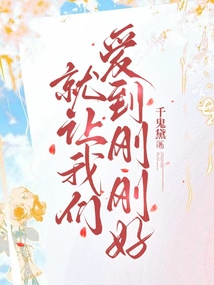 爱到刚刚好
就让我们
千鬼黛